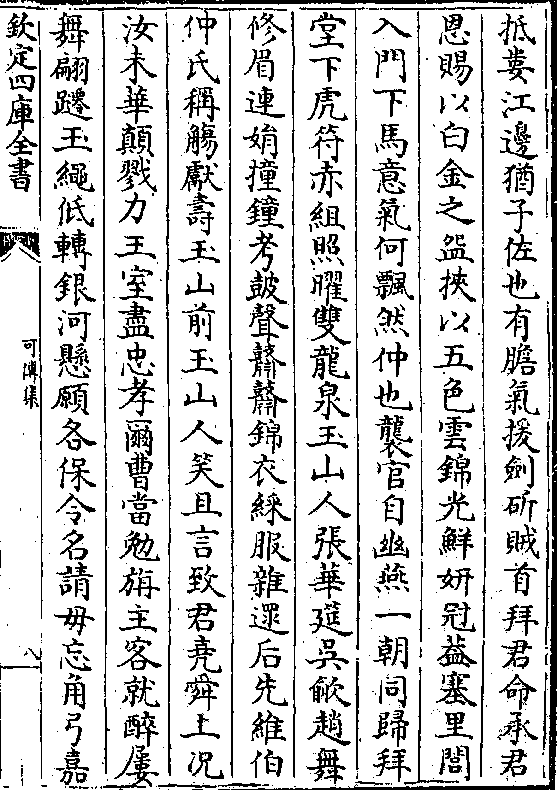 抵婁江邊猶子佐也有膽氣援劍斫賊首拜君命承君
恩賜以白金之盌挾以五色雲錦光鮮妍冠葢塞里閭
入門下馬意氣何飄然仲也襲官自幽燕一朝同歸拜
堂下虎符赤組照曜雙龍泉玉山人張華筵吳歈趙舞
修眉連娟撞鐘考鼓聲鼘鼘錦衣綵服雜遝后先維伯
仲氏稱觴獻壽玉山前玉山人笑且言致君堯舜上况
汝未華顛戮力王室盡忠孝爾曹當勉旃主客就醉屢
舞翩躚玉繩低轉銀河懸願各保令名請毋忘角弓嘉
欽定四庫全書
可傳集
八